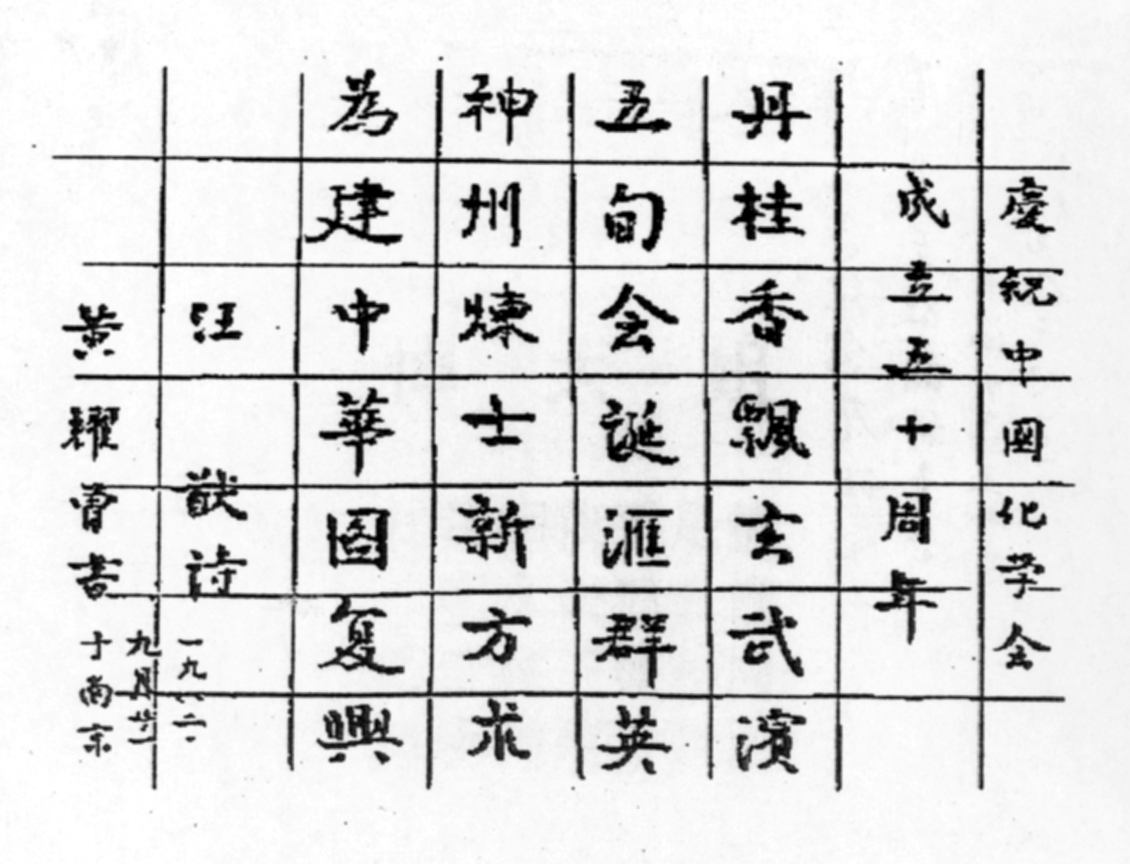 慶祝中國化学会
成立五十周年
丹桂香飄玄武濱
五旬会誕滙群英
神州煉士新方求
為建中華圖复興
汪猷詩
黄耀曾書
一九八二
九月廿一
于南京